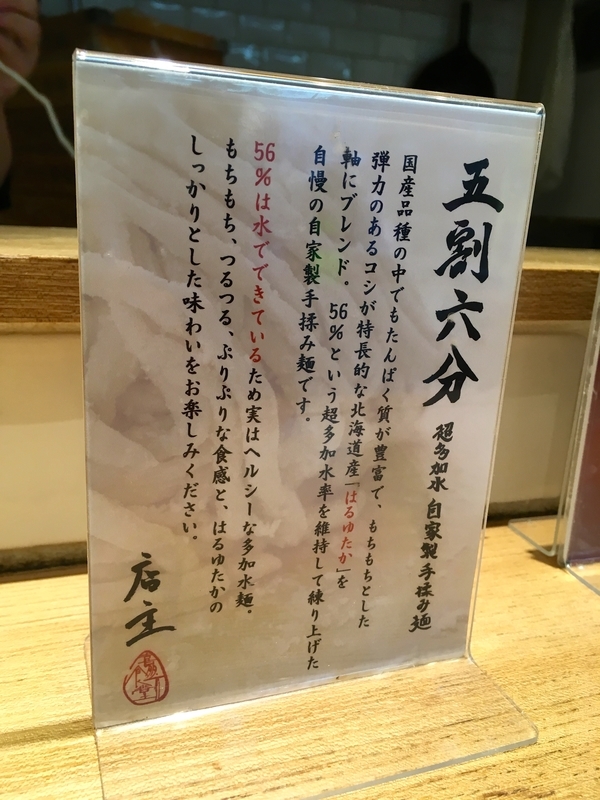 五割六分 超多加水 自家製手揉み麺
国産品種の中でもたんぱく質が豊富で、もちもちとした
弾力のあるコシが特長的な北海道産「はるゆたか」を
軸にブレンド。56%という超多加水率を維持して練り上げた
自慢の自家製手揉み麺です。
56%は水でできているため実はヘルシーな多加水麺。
もちもち、つるつる、ぷりぷりな食感と、はるゆたかの
しっかりとした味わいをお楽しみください。
店主